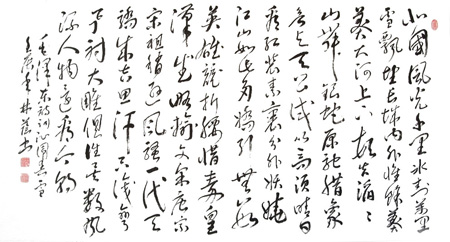 北國風光千里冰封萬里
雪飄望長城内外惟餘莽
莽大河上下頓失滔滔
山舞銀蛇原馳蠟象
欲与天公試比高須晴日
看紅裝素裹分外妖嬈
江山如此多嬌引無數
英雄競折腰惜秦皇
漢武略輸文采唐宗
宋祖稍遜風騷一代天
驕成吉思汗只識彎
弓射大雕俱往矣數風
流人物還看今朝
毛澤東詞沁園春雪